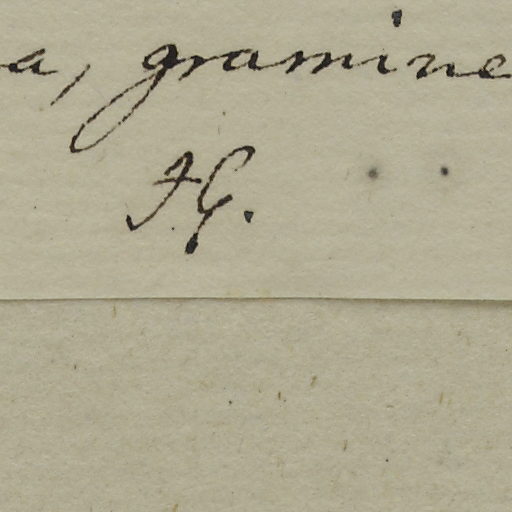 a, gramine
HG.